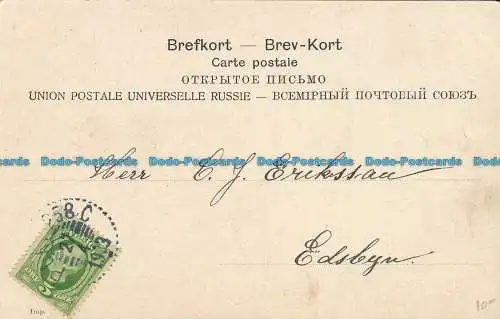 Brefkort — Brev-Kort
Carte postale
ОТКРЫТОЕ ПИСЬМО
UNION POSTALE UNIVERSELLE RUSSIE — ВСЕМІРНЫЙ ПОЧТОВЫЙ СОЮЗЪ
Dodo-Postcards Dodo-Postcards Dodo-Postcards Dodo-Postcards Dodo-Postcards
Herr C. J. Eriksson
Edsbyn.
Imp.